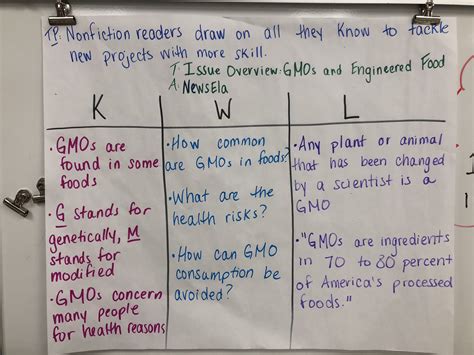 TP: Nonfiction readers draw on all they know to tackle
new projects with more skill.
T: Issue Overview: GMOs and Engineered Food
A: NewsEla
K W L
• GMOs are
found in some
foods
• G stands for
genetically, M
stands for
modified
• GMOs concern
many people
for health reasons
• How common
are GMOs in foods?
• What are the
health risks?
• How can GMO
consumption be
avoided?
• Any plant or animal
that has been changed
by a scientist is a
GMO
• "GMOs are ingredients
in 70 to 80 percent
of America's processed
foods."